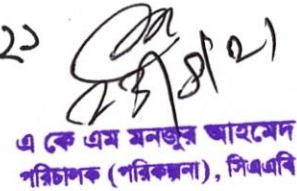 ২১
এ কে এম মনজুর আহমেদ
পরিচালক (পরিকল্পনা), সিএএবি